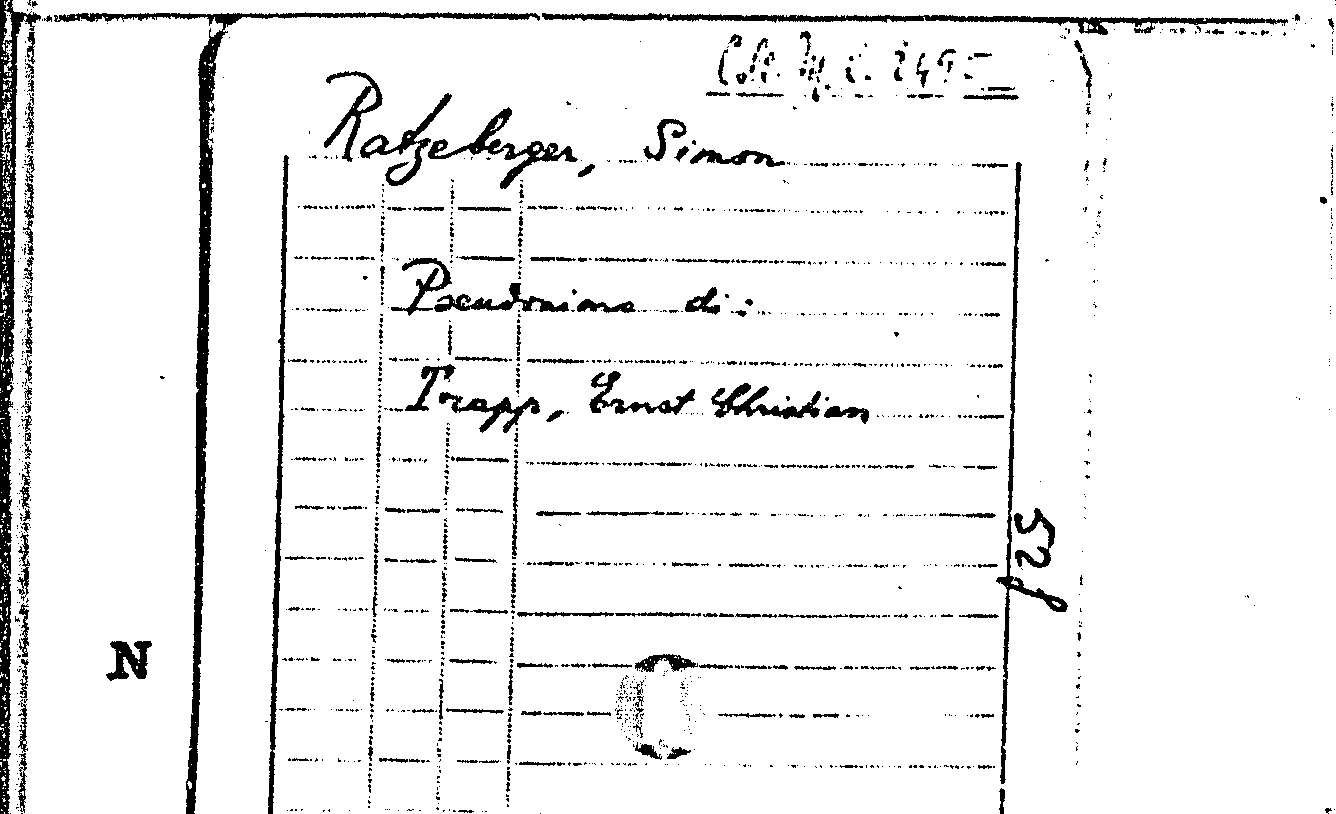 Coll. M. C. 2495
Ratzeberger, Simon
Pseudonimo di:
Trapp, Ernst Christian
52 f
N